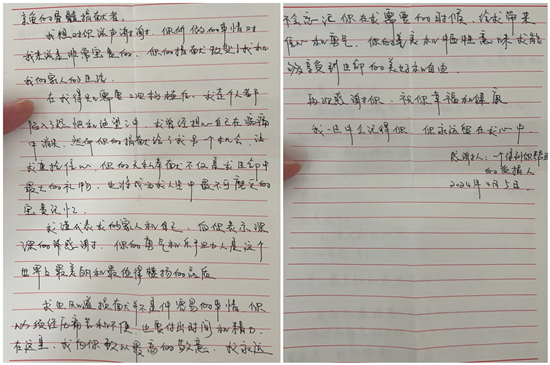 亲爱的骨髓捐献者。
我想对你说声谢谢，你所做的事情对
我来说是非常宝贵的，你的捐献改变了我和
我的家人的生活。
在我得知需要 移植后，我整个人都
陷入了恐惧和绝望之中，我曾经担心自己在病痛
中消逝，然而你的捐献给了我另一个机会，让
我重拾信心，你的无私奉献不仅是我生命中
最大的礼物，也将成为我人生中最不可磨灭的
宝贵记忆。
我谨代表我的家人和自己，向你表示深
深的 感谢，你的勇气和乐于助人是这个
世界上最美的和最值得赞扬的品质
我也知道捐献并不是件容易的事情，你
必须经历痛苦和不便，也要付出时间和精力。
在这里，我向你致以最高的敬意，我永远
不会忘记你在我需要的时候，给我带来
信心和勇气，你的善良和牺牲意味我能
够享受到生命的美好和自由
再次感谢你，祝你幸福和健康
我一生中会记得你，你永远留在我心中，
感谢人：一个得到你帮助
的受捐人
2024年4月5日